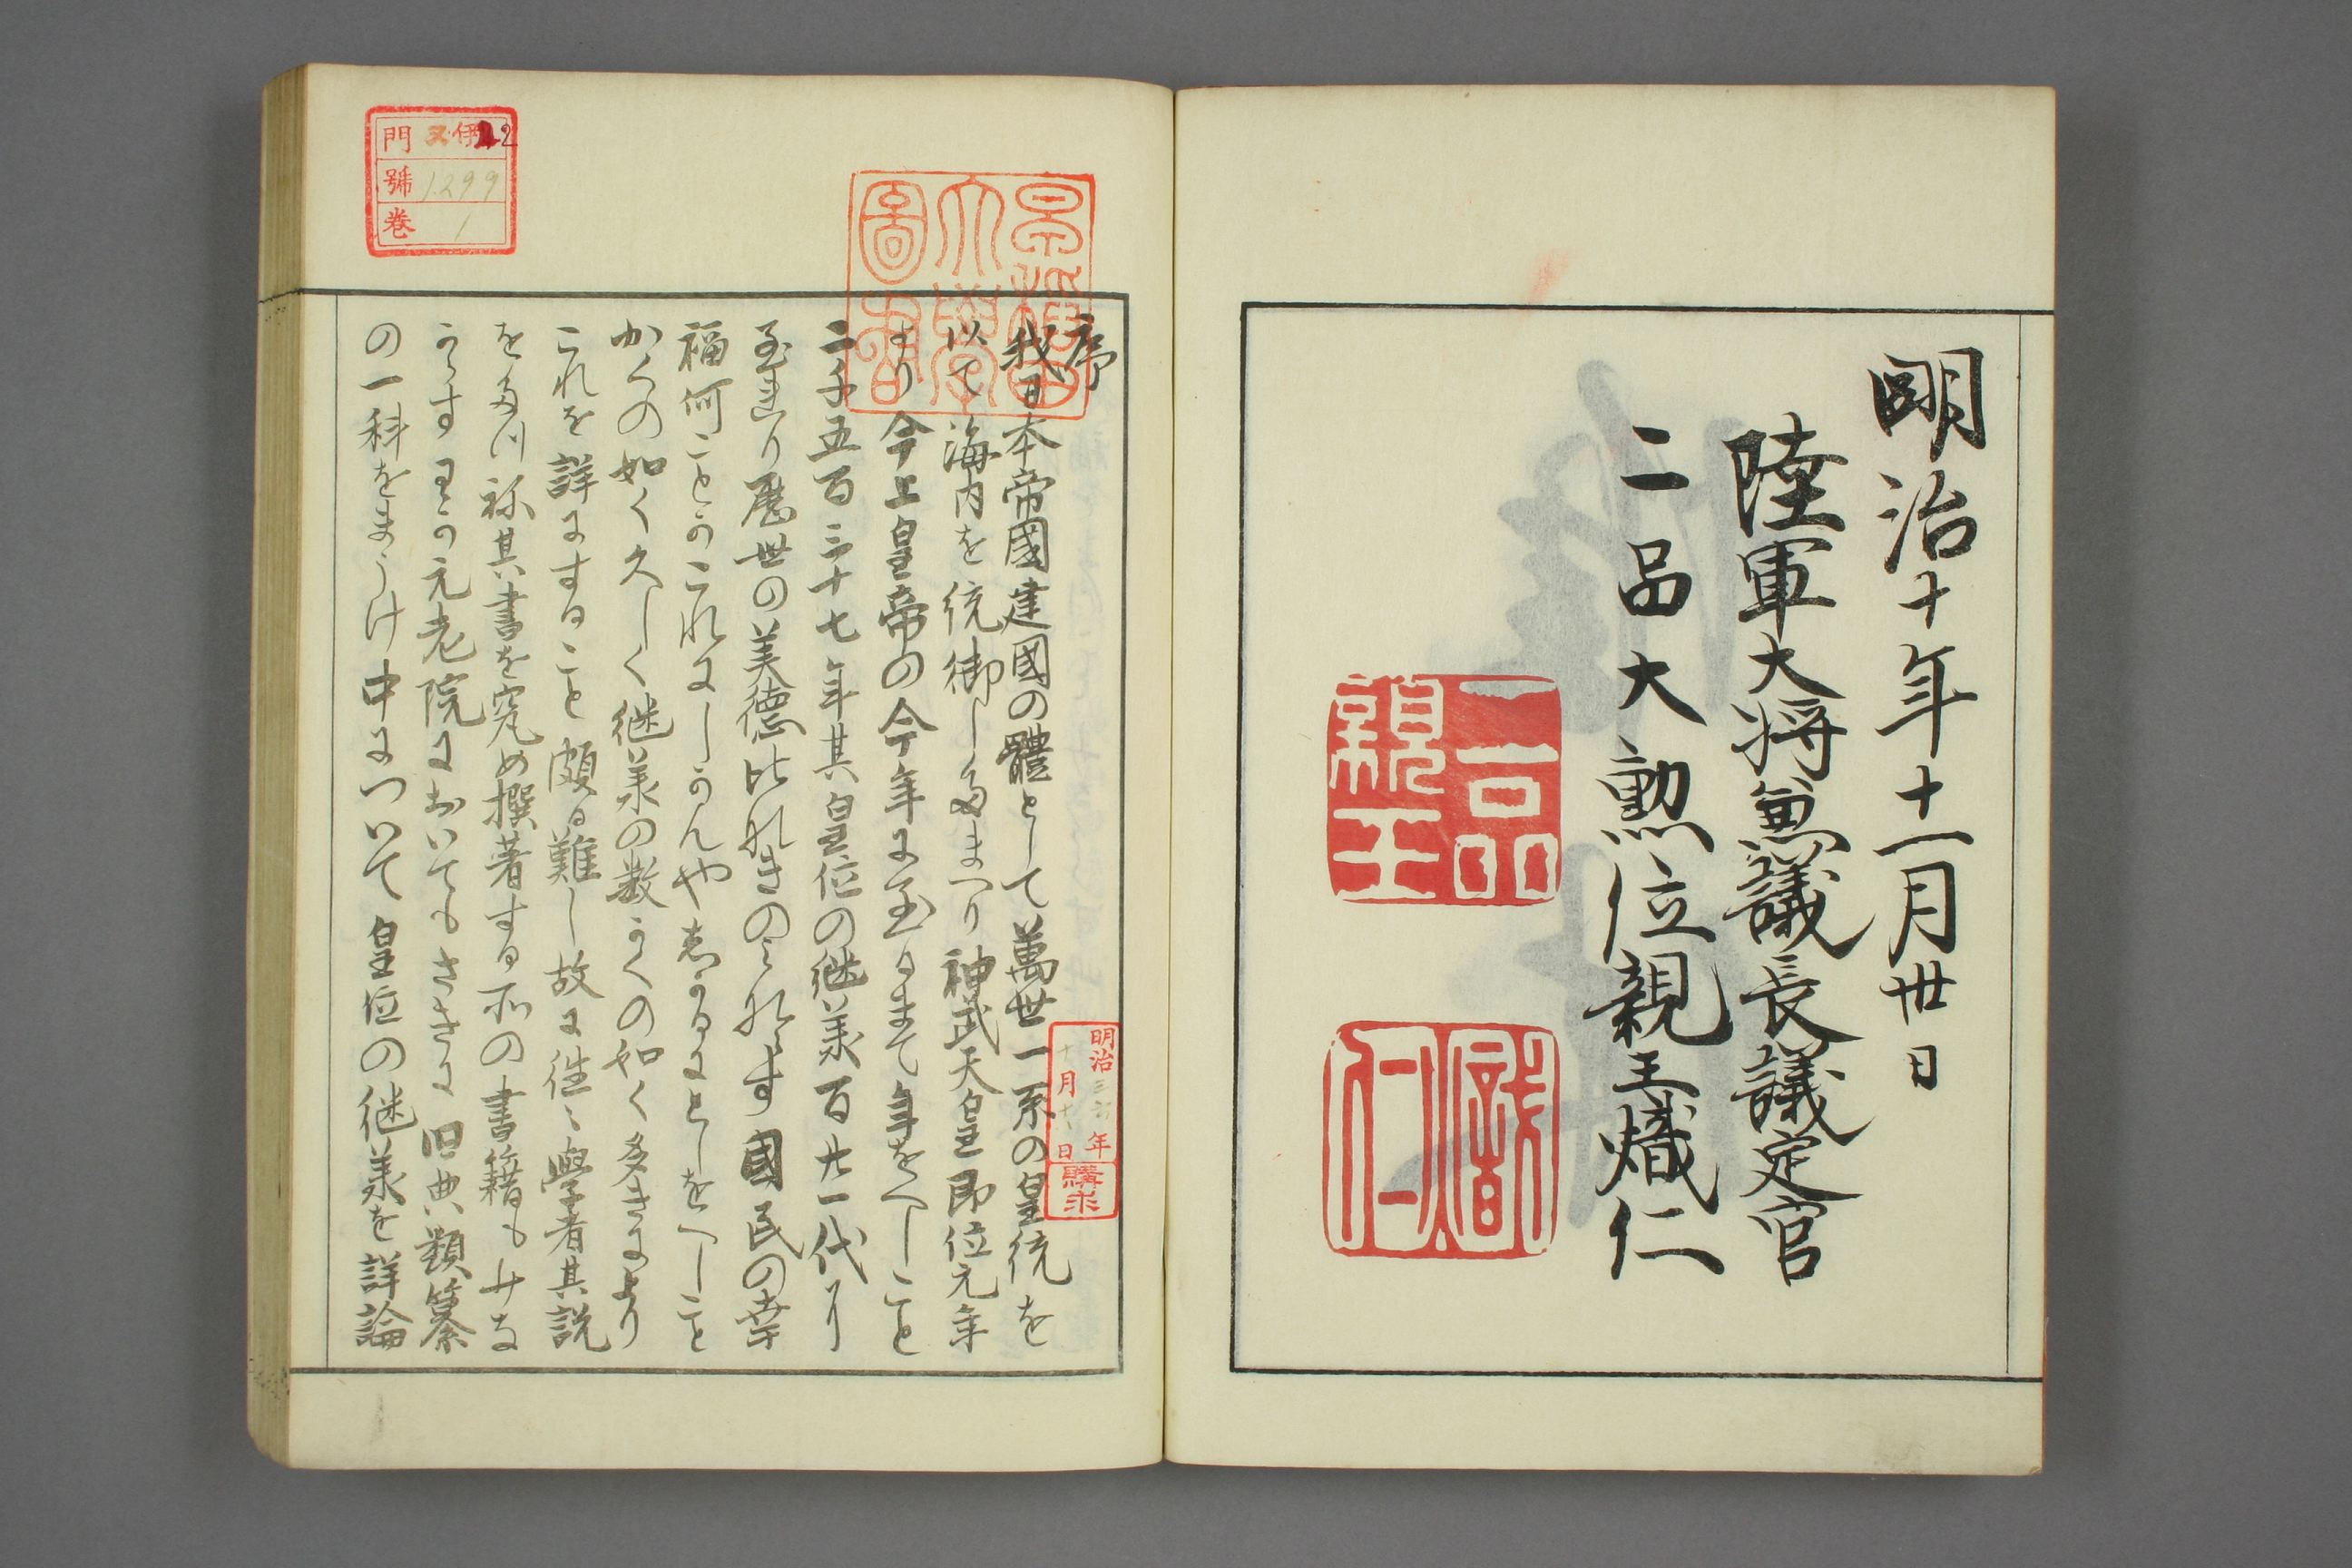 明治十年十一月丗日
陸軍大将兼議長議定官
二品大勲位親王熾仁
一品親王
熾仁
序
我日本帝國建國の體として萬世一系の皇統を
以て海内を統御したまへり神武天皇即位元年
より今上皇帝の今年に至るまて年をへしこと
二千五百三十七年其皇位の継承百廿一代に
至れり歴世の美德比なきのみならす國民の幸
福何ことかこれにしかんや志かるにとしをへしこと
かくの如く久しく継承の数かくの如く多きにより
これを詳にすること頗る難し故に徃〻學者其説
をたつね其書を究め撰著する所の書籍もすくなから
すわか元老院においてもさきに旧典類纂
の一科をまうけ中について皇位の継承を詳論
早稲田大學圖書
門 又伊4 2
號 1299
巻 1
明治三六年
十月十 日
購求